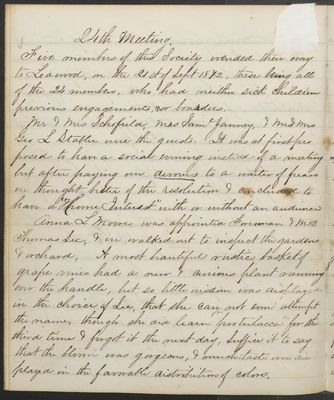 24th Meeting.
Five members of this Society wended their way
to Leawood, on the 21st of Sept 1872, these being all
of the 24 members, who had neither sick children
previous engagements, nor boarders.
Mr & Mrs Schofield, Mrs Sam Janney, & Mr & Mrs
Geo L Stabler were the guests. It was at first pro
posed to have a social evening instead of a meeting
but after paying our devoirs to a waiter of pears
we thought better of the resolution & concluded to
have a "Home Interest" with or without an audience
Anna L Moore was appointed Foreman & M B
Thomas Sec, & we walked out to inspect the gardens
& orchard. A most beautiful rustic basket of
grape vines had a new & curious plant running
over the handle, but so little wisdom was displayed
in the choice of Sec, that she can not even attempt
the name, though she did learn portulacca for the
third time & forgot it the next day, suffice it to say
that the bloom was gorgeous, & much taste was dis
played in the favorable distribution of colors.